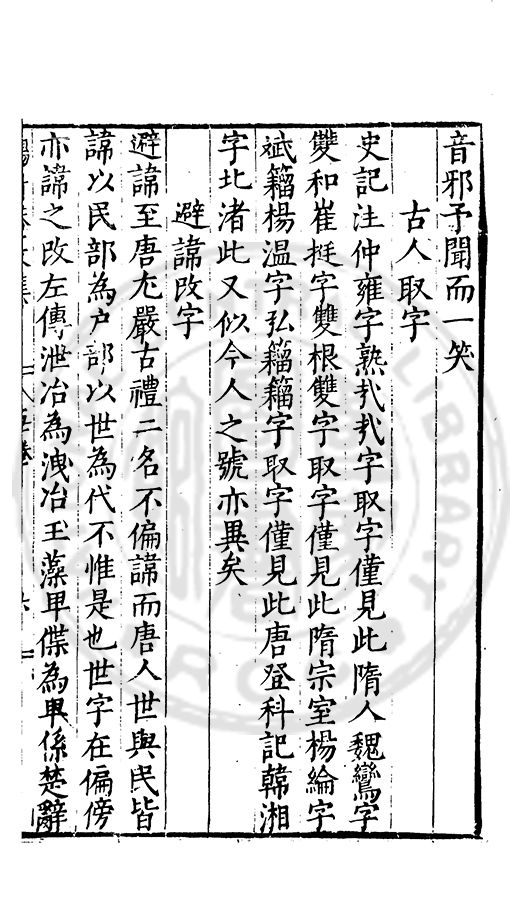 音邪予聞而一笑
古人取字
史記注仲雍字熟㢤㢤字取字僅見此隋人魏鸞字
雙和崔挺字雙根雙字取字僅見此隋宗室楊綸字
斌籀楊溫字弘籀籀字取字僅見此唐登科記韓湘
字北渚此又似今人之號亦異矣
避諱改字
避諱至唐尤嚴古禮二名不偏諱而唐人世與民皆
諱以民部為户部以世為代不惟是也世字在偏傍
亦諱之改左傳泄冶為洩冶玉藻甲偞為甲係楚辭